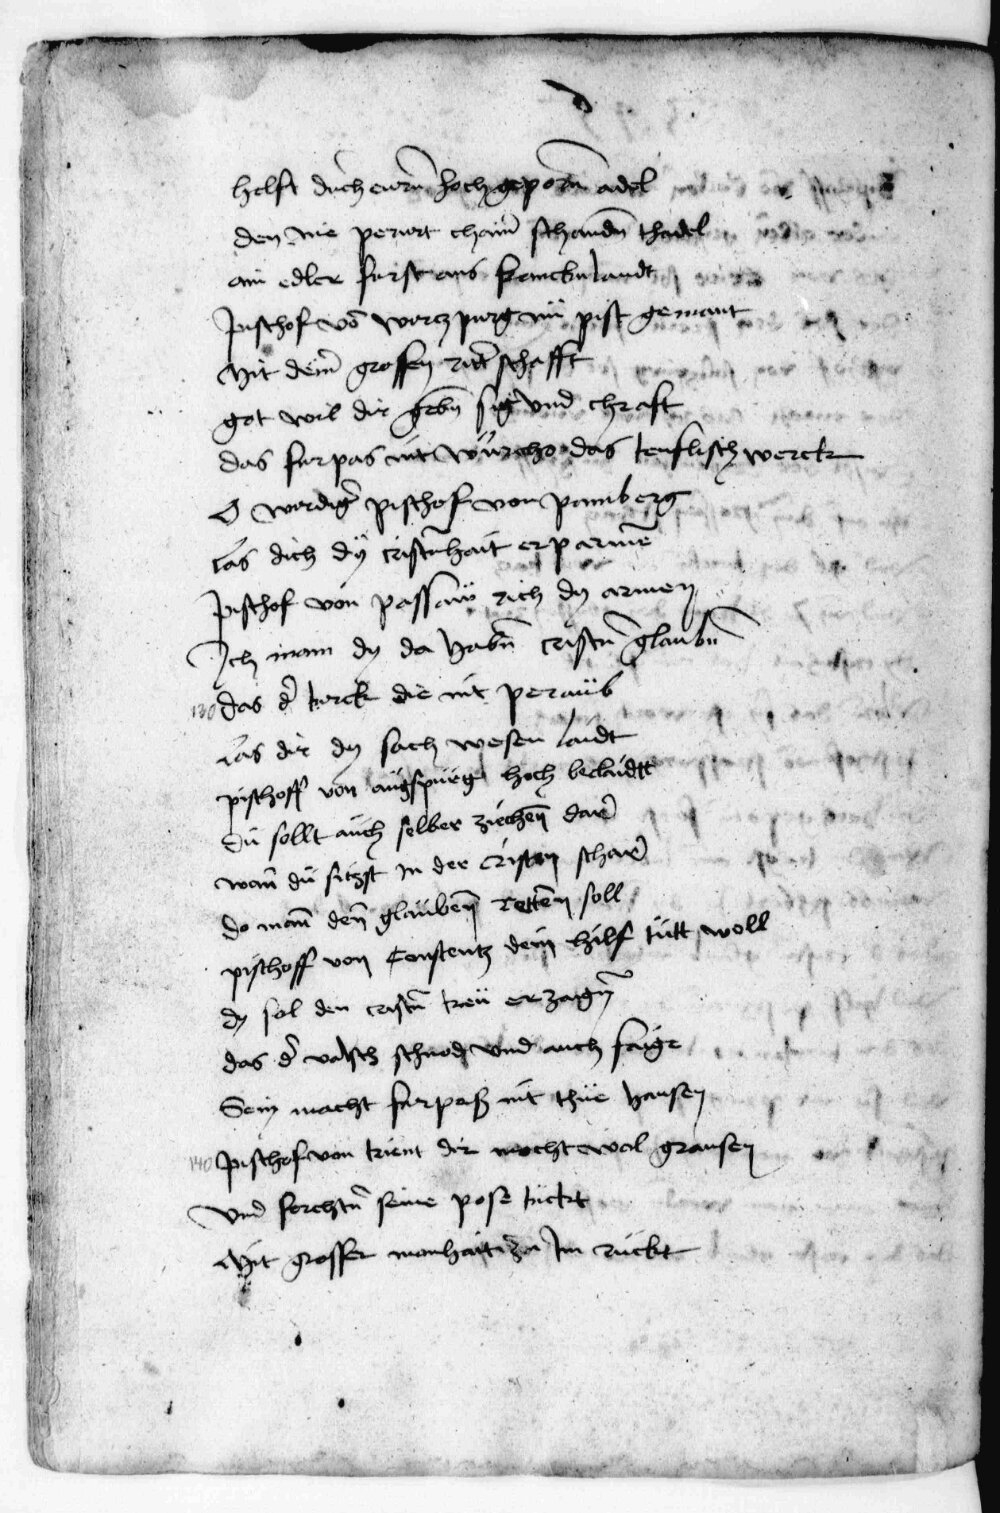 helft durch eurñ hochgeporñ adel
den nie perurt chainr schandñ thadel
ain edler furst aus franckenlandt
Pischof vō wortzpurg nū pist gemant
Mit deinr grossen ritterschafft
got wil dir gebñ sig vnd chraft
das furpas nit wurcho das teuflisch werck
O wirdigr pischof von pamberg
las dich dÿ cristñhait erparmē
Pischof von passaw rich dy armen
Ich main dy da habñ cristñ glaubñ
130 das dr turck die nit peraub
las dir dy sach wesen laidt
pischoff von augspurg hoch beclaidtt
du sollt auch selber ziechen dar
wann du sitzst In der Cristen schar
do mann den glauben retten soll
pischoff von Constentz dein hilf tutt woll
dy sol den cristñ treu erzaigñ
das dr valsch schnod vnd auch faige
Sein macht furpaß nit thue hausen
140 Pischof von trient dir mocht wol grausen
Vnd forchtñ seine pose tuckt
Mit grosser manhait zu Im ruckt